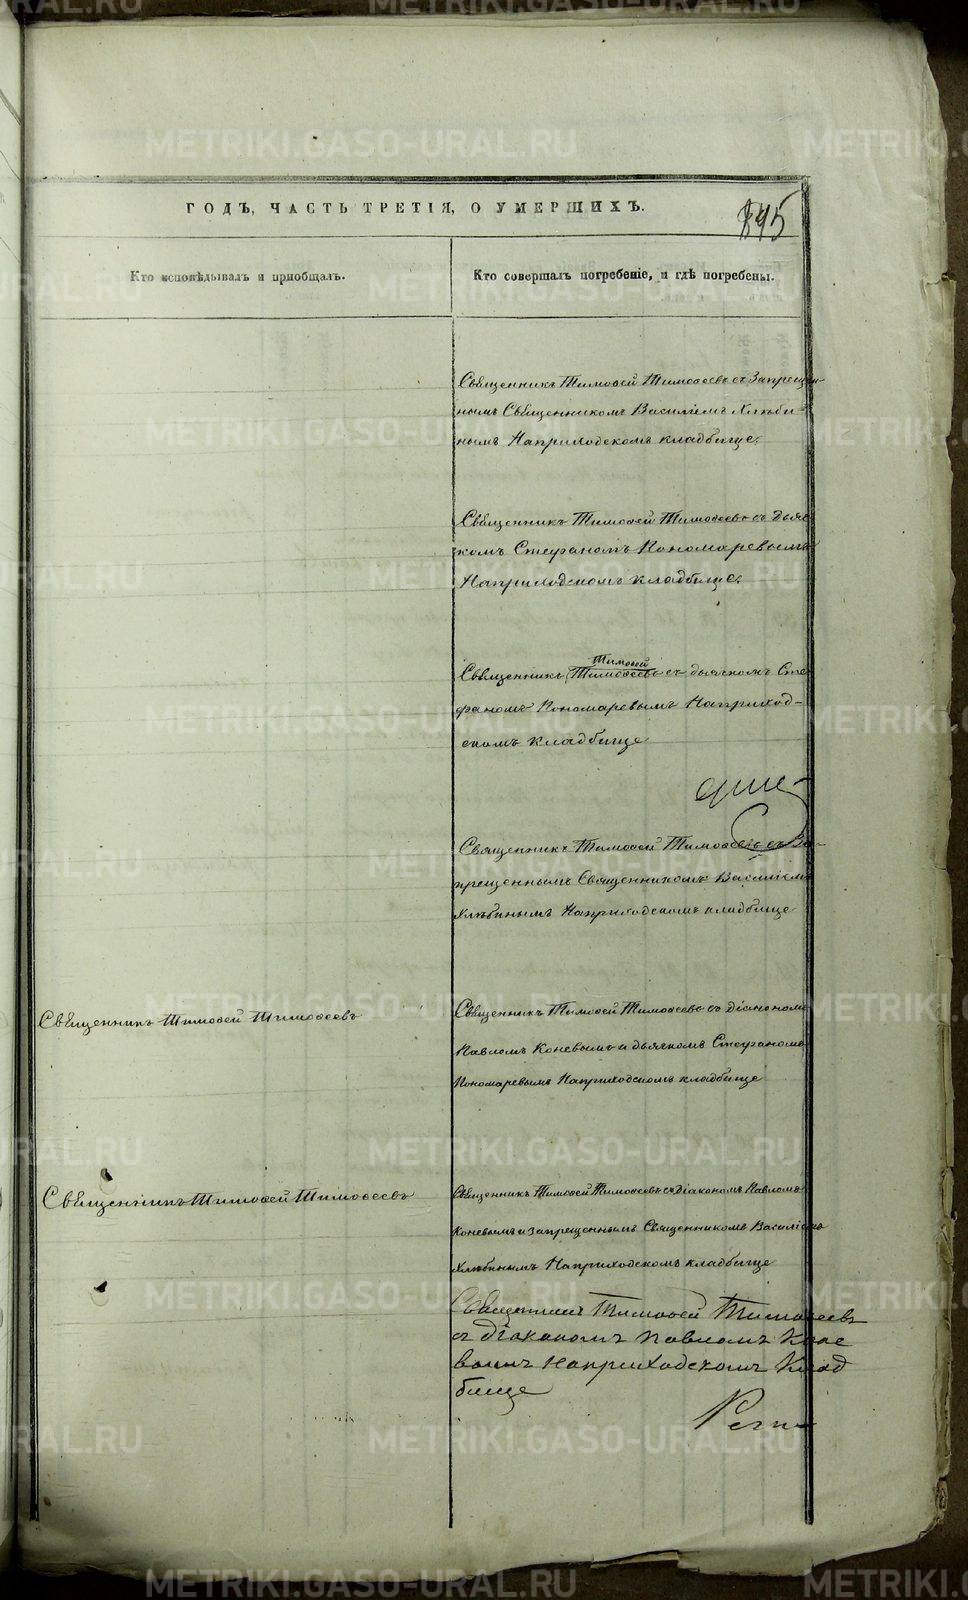 ГОДЪ, ЧАСТЬ ТРЕТІЯ, О УМЕРШИХЪ.
Кто исповѣдывалъ и пріобщалъ.
Кто совершалъ погребеніе, и гдѣ погребены.
Священникъ Тимоѳей Тимоѳеевъ съ Запрещен-
нымъ Священникомъ Василіемъ Хлѣби-
нымъ Наприходскомъ кладбище.
Священникъ Тимоѳей Тимоѳеевъ съ дьяч-
комъ Стефаномъ Пономаревымъ
Наприходскомъ кладбище.
Тимоѳей
Священникъ Тимоѳеевъ съ дьячкомъ Сте-
фаномъ Пономаревымъ Наприход-
скомъ кладбище
Священникъ Тимоѳей Тимоѳеевъ съ За-
прещеннымъ Священникомъ Василіемъ
Хлѣбинымъ Наприходскомъ кладбище
Священникъ Тимоѳей Тимоѳеевъ
Священникъ Тимоѳей Тимоѳеевъ съ Діакономъ
Павломъ Коневымъ и дьячкомъ Стефаномъ
Пономаревымъ Наприходскомъ кладбище
Священникъ Тимоѳей Тимоѳеевъ
Священникъ Тимоѳей Тимоѳеевъ съ Діакономъ Павломъ
Коневымъ и запрещеннымъ Священникомъ Василіемъ
Хлѣбинымъ Наприходскомъ кладбище
Священникъ Тимоѳей Тимоѳеевъ
съ Діакономъ Павломъ Коне
вымъ Наприходскомъ Клад
бище
METRIKI.GASO-URAL.RU